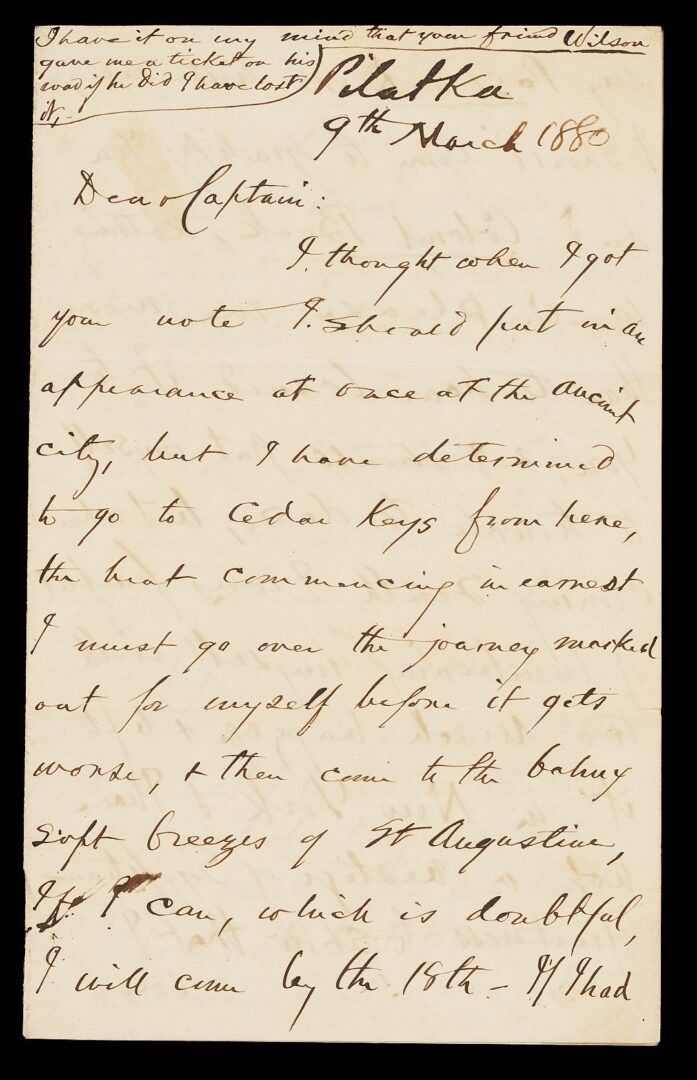 I have it on my mind that your friend Wilson
gave me a ticket on his
road if he did I have lost
it,
Pilatka
9th March 1880
Dear Captain:
I thought when I got
your note I should put in an
appearance at once at the ancient
city, but I have determined
to go to Cedar Keys from here,
the heat commencing in earnest
I must go over the journey marked
out for myself before it gets
worse, & then come to the balmy
soft breezes of St Augustine,
If I can, which is doubtful,
I will come by the 18th - If I had